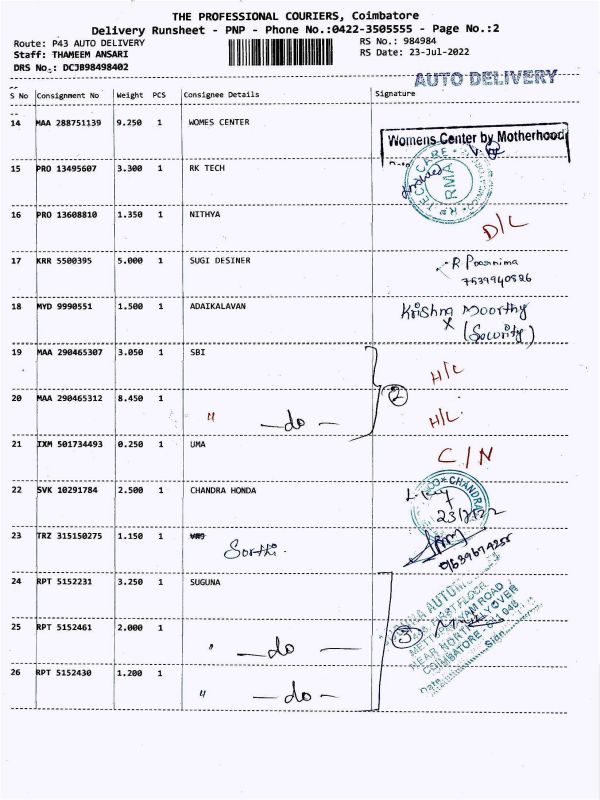 THE PROFESSIONAL COURIERS, Coimbatore
Delivery Runsheet - PNP - Phone No.:0422-3505555 - Page No.:2
Route: P43 AUTO DELIVERY RS No.: 984984
Staff: THAMEEM ANSARI RS Date: 23-Jul-2022
DRS No.: DCJB98498402
AUTO DELIVERY
S No Consignment No Weight PCS Consignee Details Signature
14 MAA 288751139 9.250 1 WOMES CENTER
Womens Center by Motherhood
15 PRO 13495607 3.300 1 RK TECH
RMA
16 PRO 13608810 1.350 1 NITHYA D/L
17 KRR 5500395 5.000 1 SUGI DESINER R Poornima
7539940826
18 MYD 9990551 1.500 1 ADAIKALAVAN Krishna Moorthy
X (Security)
19 MAA 290465307 3.050 1 SBI H/L
2
20 MAA 290465312 8.450 1 " -do- H/L
21 IXM 501734493 0.250 1 UMA C/N
22 SVK 10291784 2.500 1 CHANDRA HONDA
CHANDRA
23/7/22
23 TRZ 315150275 1.150 1
24 RPT 5152231 3.250 1 SUGUNA
FIRST FLOOR
25 RPT 5152461 2.000 1 " -do- 3
COIMBATORE
Sign
26 RPT 5152430 1.200 1 " -do-
Date